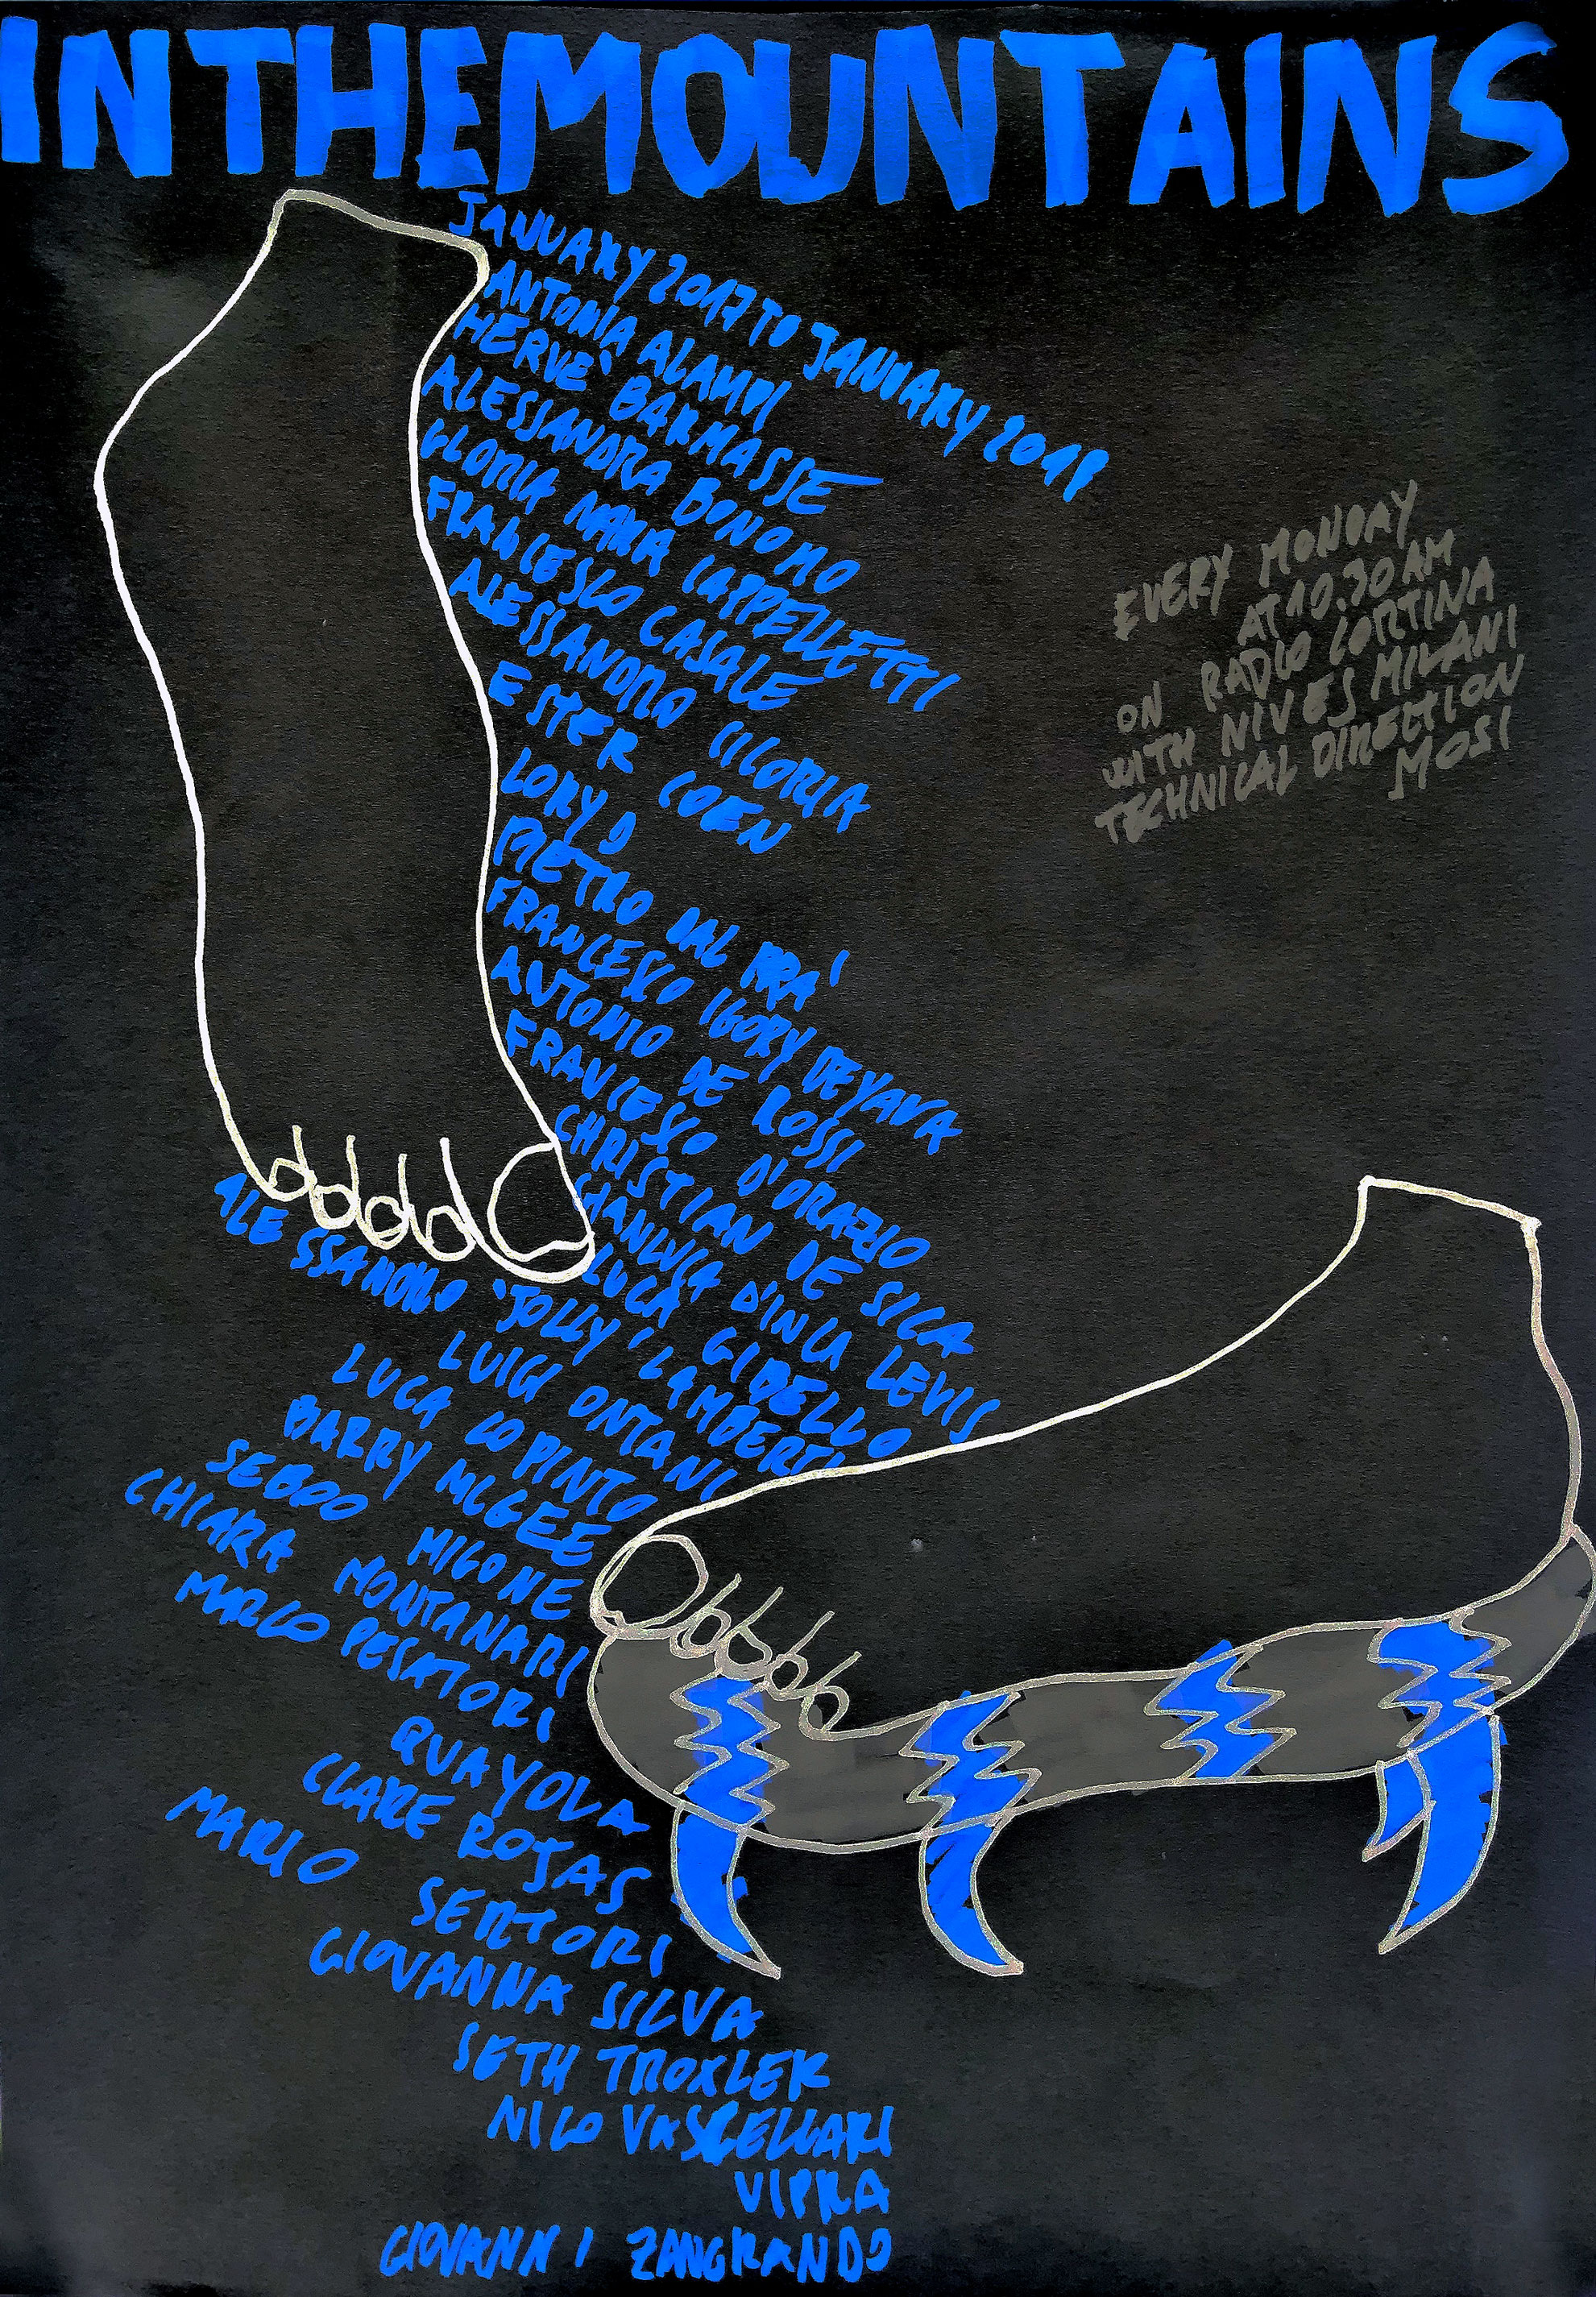 INTHEMOUNTAINS
JANUARY 2017 TO JANUARY 2018
ANTONIA ALAMPI
HERVE' BARMASSE
ALESSANDRA BONOMO
GLORIA MARIA CAPPELLETTI
FRANCESCO CASALE
ALESSANDRO CICORIA
ESTER COEN
LORY D
PIETRO DAL PRA'
FRANCESCO IGORY DEYANA
ANTONIO DE ROSSI
FRANCESCO D'ORAZIO
CHRISTIAN DE SICA
GIANLUCA D'INCÀ LEVIS
LUCA GIBELLO
ALESSANDRO 'JOLLY' LAMBERTI
LUIGI ONTANI
LUCA LO PINTO
BARRY MCGEE
SEBOO MIGONE
CHIARA MONTANARI
MARCO PESATORI
QUAYOLA
CLARE ROJAS
MARIO SERTORI
GIOVANNA SILVA
SETH TROXLER
NICO VASCELLARI
VIPRA
GIOVANNI ZANGRANDO
EVERY MONDAY
AT 10.30 AM
ON RADIO CORTINA
WITH NIVES MILANI
TECHNICAL DIRECTION
MOSI